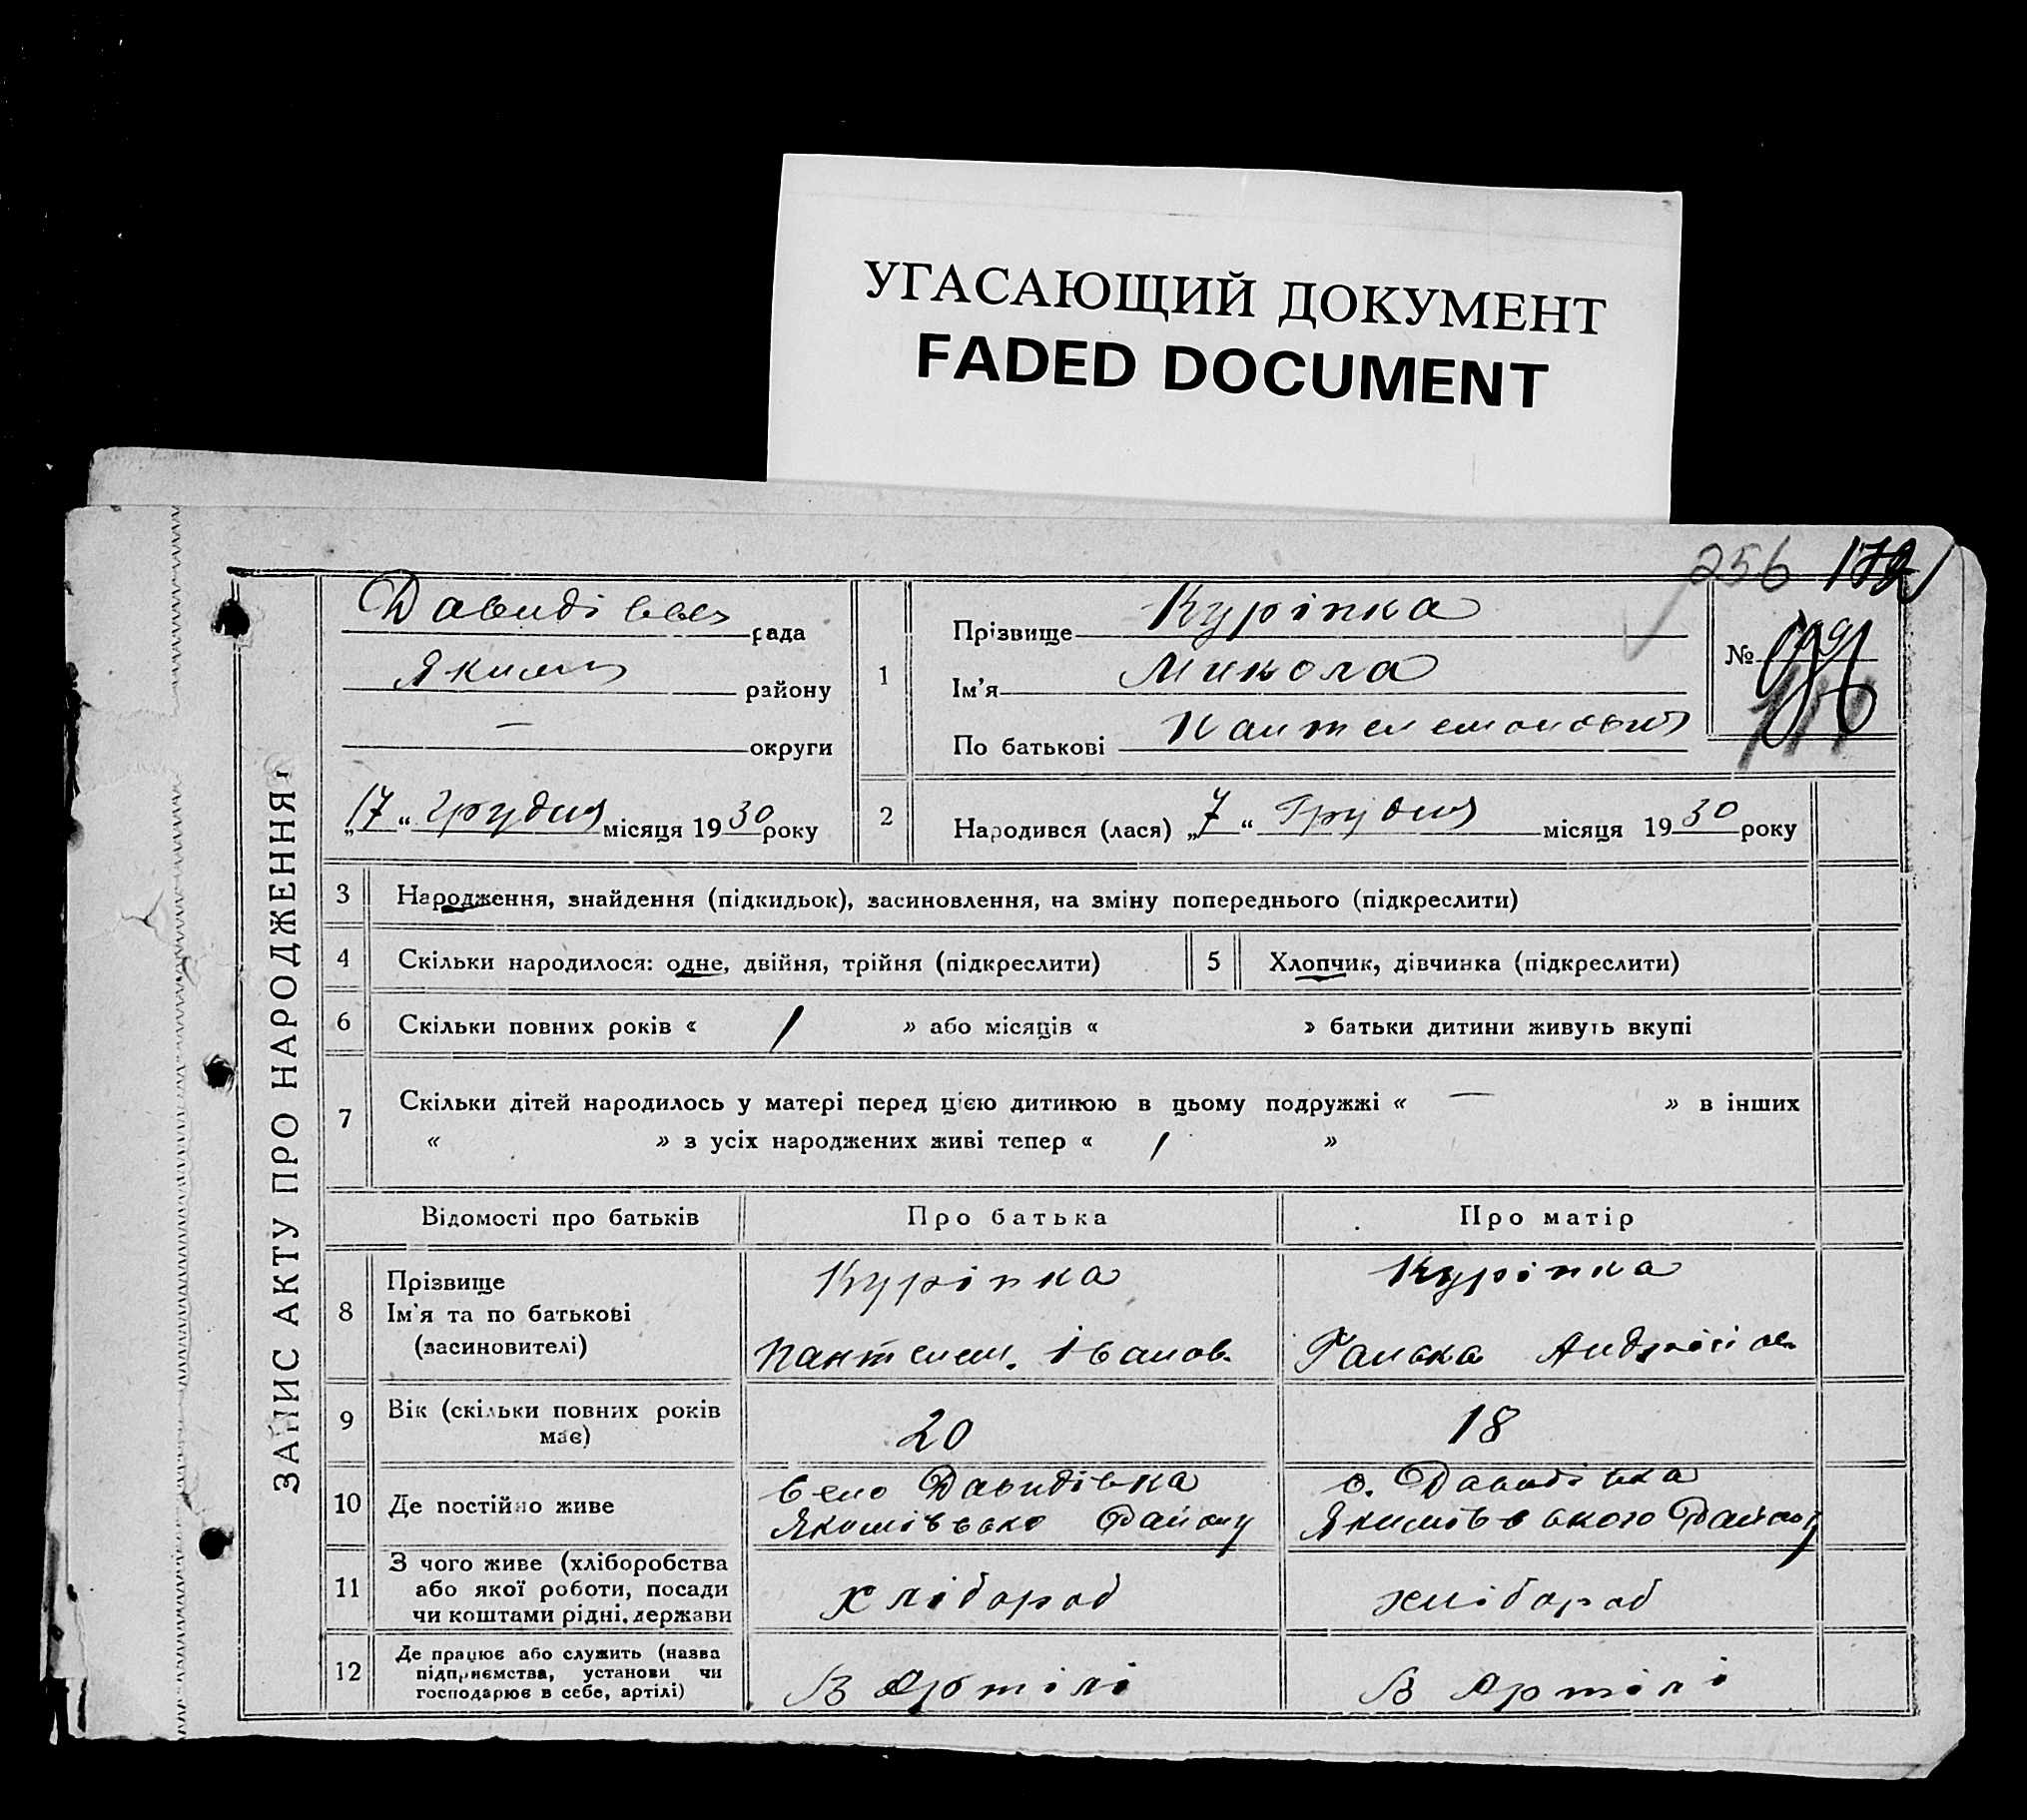 УГАСАЮЩИЙ ДОКУМЕНТ
FADED DOCUMENT
256
ЗАПИС АКТУ ПРО НАРОДЖЕННЯ
рада
Яким району
— округи
„17“ Грудня місяця 1930 року
1
Прізвище Куріпка
Ім'я Микола
По батькові Пантелемонович
№
2
Народився (лася) „7“ Грудня місяця 1930 року
3 Народження, знайдення (підкидьок), засиновлення, на зміну попереднього (підкреслити)
4 Скільки народилося: одне, двійня, трійня (підкреслити) 5 Хлопчик, дівчинка (підкреслити)
6 Скільки повних років « 1 » або місяців « » батьки дитини живуть вкупі
7 Скільки дітей народилось у матері перед цією дитиною в цьому подружжі « — » в інших
« » з усіх народжених живі тепер « 1 »
Відомості про батьків Про батька Про матір
8 Прізвище
Ім'я та по батькові
(засиновителі)
Куріпка
Пантелем. Іванов.
Куріпка
Ганька
9 Вік (скільки повних років
має)
20
18
10 Де постійно живе
село Давидівка
Якимівсько Району
с. Давидівка
Якимівського Району
11 З чого живе (хліборобства
або якої роботи, посади
чи коштами рідні, держави
хлібороб
хлібороб
12 Де працює або служить (назва
підприємства, установи чи
господарює в себе, артілі)
В Артілі
В Артілі